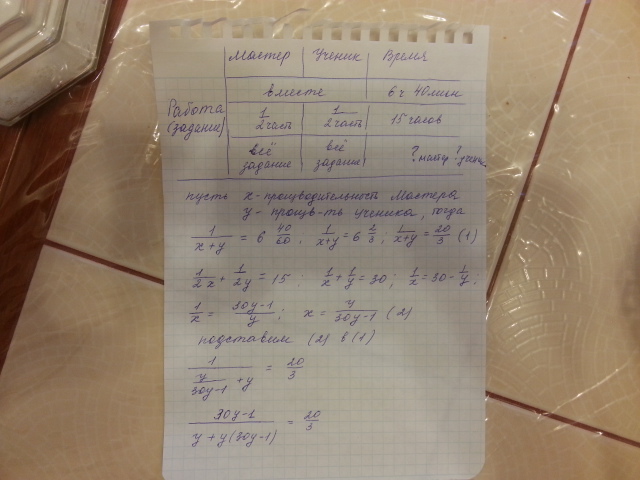 Мастер Ученик Время
вместе 6 ч 40 мин
Работа (задание)
1/2 часть 1/2 часть 15 часов
всё задание всё задание ? мастер ? ученик
пусть x - производительность Мастера
y - произв-ть ученика, тогда
1/(x+y) = 6 40/60; 1/(x+y) = 6 2/3; 1/(x+y) = 20/3 (1)
1/2x + 1/2y = 15; 1/x + 1/y = 30; 1/x = 30 - 1/y;
1/x = (30y-1)/y; x = y/(30y-1) (2)
подставим (2) в (1)
1/(y/(30y-1) + y) = 20/3
(30y-1)/(y+y(30y-1)) = 20/3